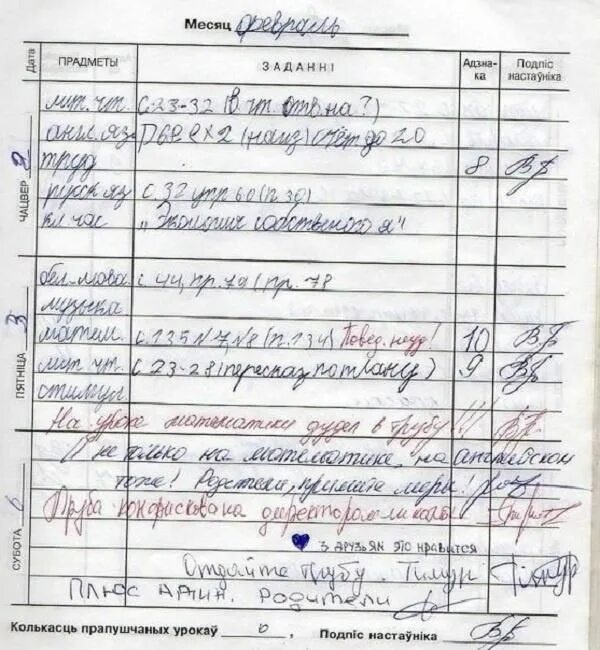 Месяц февраль
Дата ПРАДМЕТЫ ЗАДАННІ Адзнака Подпіс настаўніка
ЧАЦВЕР 2
лит. чт. с 23-32 (в чт. отв на?)
англ. яз. (наиз) счёт до 20
труд 8
русск яз с 32 упр 60 (п 30)
кл. час „Экология собственного я"
ПЯТНІЦА 3
бел. мова с 44, пр. 79 (пр. 78
музыка
матем. с. 135 №7, №8 (п. 134) Повед. неуд! 10
лит. чт. с 23-28 (пересказ по плану) 9
стимул
На уроке математики дудел в трубу!!!
И не только на математике, на английском
тоже! Родители, примите меры!
СУБОТА 6
Труба конфискована директором школы
3 друзьям это нравится
Отдайте трубу. Тимур
Плюс Адин. Родители
Колькасць прапушчаных урокаў 0, Подпіс настаўніка